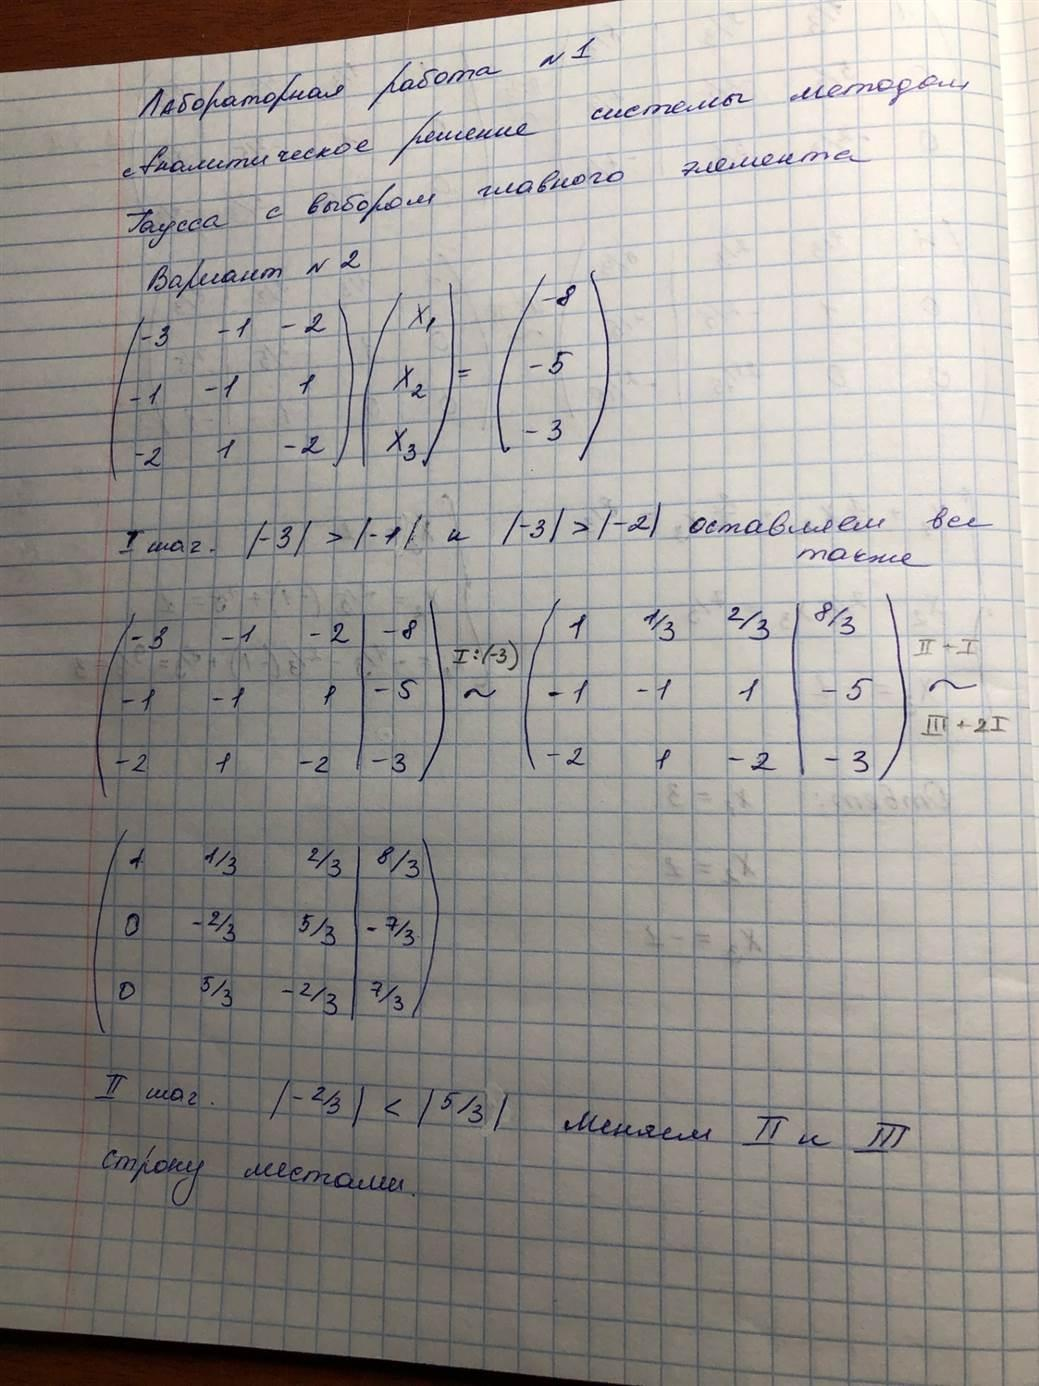 Лабораторная работа №1
Аналитическое решение системы методом
Гаусса с выбором главного элемента
Вариант №2
-3 -1 -2 x₁ -8
-1 -1 1 x₂ = -5
-2 1 -2 x₃ -3
I шаг. |-3| > |-1| и |-3| > |-2| оставляем все
также
-3 -1 -2 | -8 I:(-3) 1 1/3 2/3 | 8/3 II+I
-1 -1 1 | -5 ~ -1 -1 1 | -5 ~
-2 1 -2 | -3 -2 1 -2 | -3 III+2I
1 1/3 2/3 | 8/3
0 -2/3 5/3 | -7/3
0 5/3 -2/3 | 7/3
II шаг. |-2/3| < |5/3| Меняем II и III
строку местами.